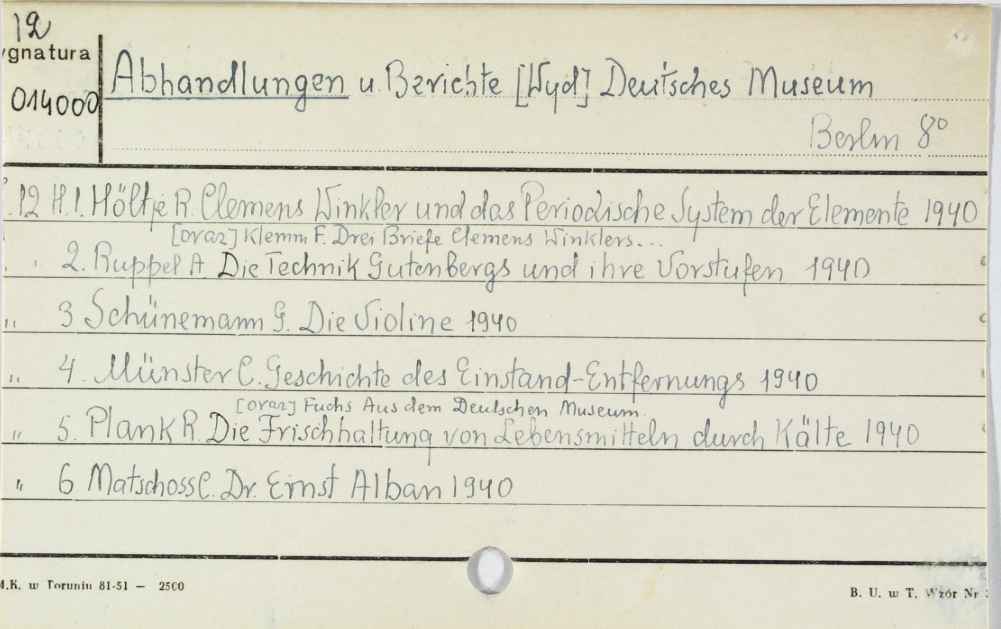 12
ygnatura
014000
Abhandlungen u. Berichte [Wyd] Deutsches Museum
Berlin 8°
12 H.1. Höltje R. Clemens Winkler und das Periodische System der Elemente 1940
[oraz] Klemm F. Drei Briefe Clemens Winklers...
" 2. Ruppel A Die Technik Gutenbergs und ihre Vorstufen 1940
" 3 Schünemann G. Die Violine 1940
" 4. Münster C. Geschichte des Einstand-Entfernungs 1940
[oraz] Fuchs Aus dem Deutschen Museum.
" 5. Plank R. Die Frischhaltung von Lebensmitteln durch Kälte 1940
" 6 Matschoss C. Dr. Ernst Alban 1940
M.K. w Toruniu 81-51 — 2500
B. U. w T. Wzór Nr